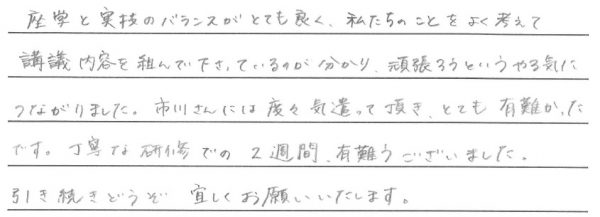 座学と実技のバランスがとても良く、私たちのことをよく考えて
講議内容を組んで下さっているのが分かり、頑張ろうというやる気に
つながりました。市川さんには度々気遣って頂き、とても有難かった
です。丁寧な研修での2週間、有難うございました。
引き続きどうぞ宜しくお願いいたします。